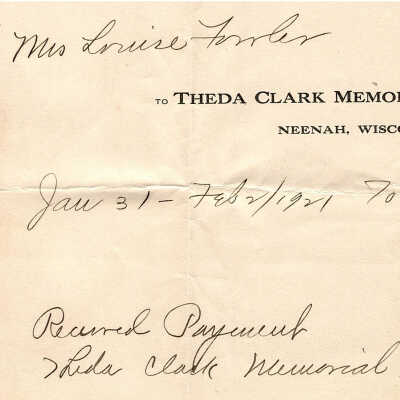 Mrs Louise Fowler
TO THEDA CLARK MEMOR
NEENAH, WISCO
Jan 31 - Feb 2/1921 To
Received Payment
Theda Clark Memorial